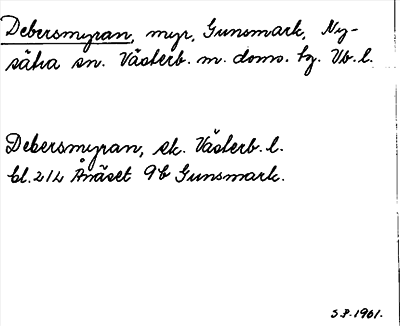 Debersmyran, myr, Gunsmark, Ny-
sätra sn. Västerb. m. doms. tg. Vb. l.
Debersmyran, sk. Västerb. l.
bl. 212 Ånäset 9b Gunsmark.
S.P. 1961.